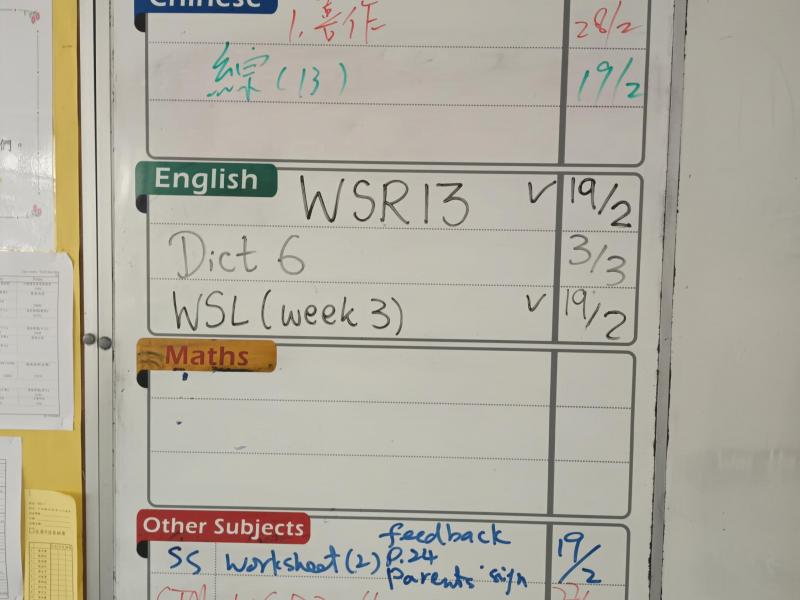 Chinese
1. 喜作 28/2
綜(13) 19/2
English
WSR13 ✓ 19/2
Dict 6 3/3
WSL (week 3) ✓ 19/2
Maths
Other Subjects
feedback
SS worksheet (2) P.24 19/2
Parents' sign